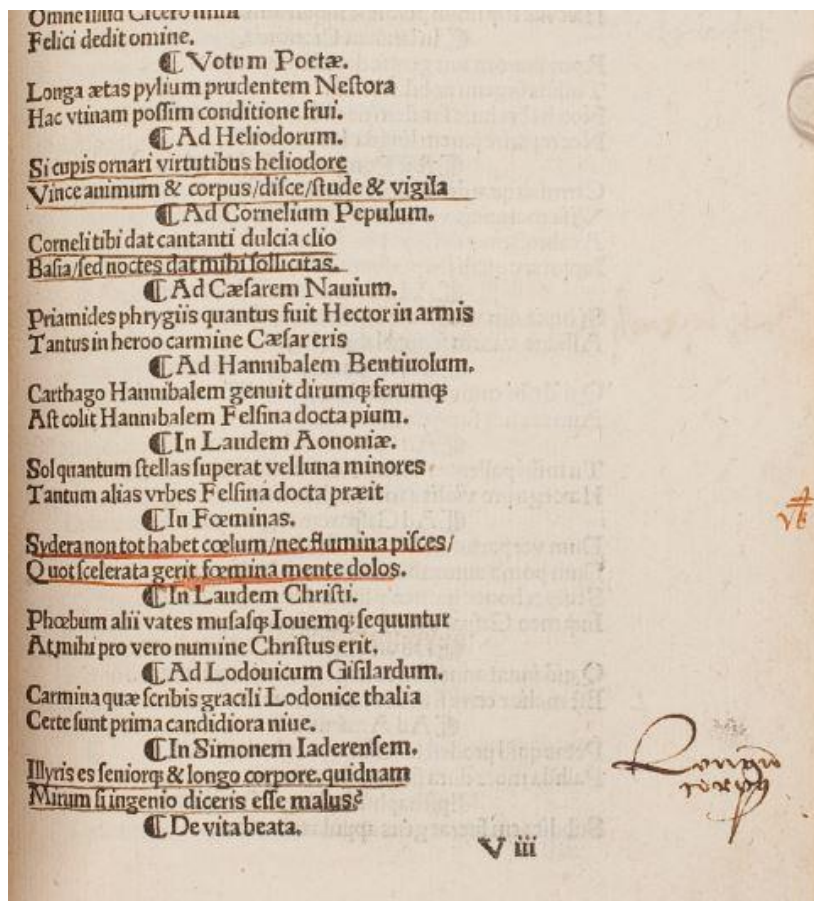 Omne illud Cicero mihi
Felici dedit omine.
¶ Votum Poetæ.
Longa ætas pylium prudentem Neſtora
Hac vtinam poſſim conditione frui.
¶ Ad Heliodorum.
Si cupis ornari virtutibus heliodore
Vince animum & corpus/diſce/ſtude & vigila
¶ Ad Cornelium Pepulum.
Corneli tibi dat cantanti dulcia clio
Baſia/ſed noctes dat mihi ſollicitas.
¶ Ad Cæſarem Nauium.
Priamides phrygiis quantus fuit Hector in armis
Tantus in heroo carmine Cæſar eris
¶ Ad Hannibalem Bentiuolum.
Carthago Hannibalem genuit dirumqꝫ ferumqꝫ
Aſt colit Hannibalem Felſina docta pium.
¶ In Laudem Aononiæ.
Sol quantum ſtellas ſuperat vel luna minores
Tantum alias vrbes Felſina docta præit
¶ In Fœminas.
Sydera non tot habet cœlum/nec flumina piſces/
Quot ſcelerata gerit fœmina mente dolos.
¶ In Laudem Chriſti.
Phœbum alii vates muſaſqꝫ Iouemqꝫ ſequuntur
At mihi pro vero numine Chriſtus erit.
¶ Ad Lodouicum Giſilardum.
Carmina quæ ſcribis gracili Lodonice thalia
Certe ſunt prima candidiora niue.
¶ In Simonem Iaderenſem.
Illyris es ſeniorqꝫ & longo corpore.quidnam
Mirum ſi ingenio diceris eſſe malus?
¶ De vita beata.
V iii